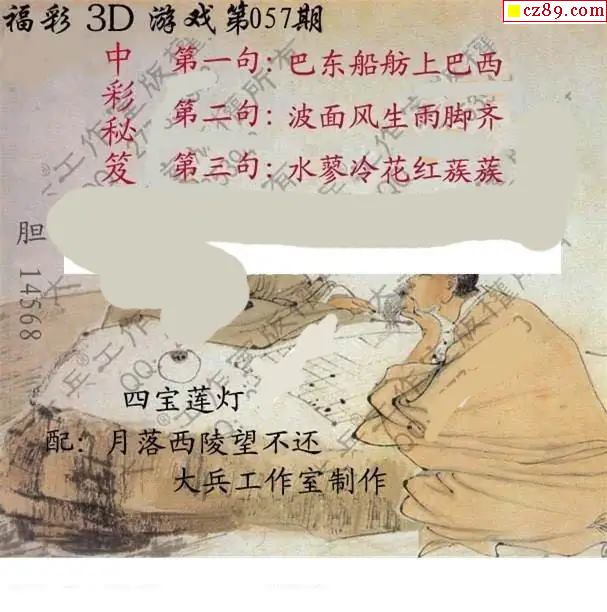 福彩 3D 游戏第057期
cz89.com
中彩秘笈
第一句：巴东船舫上巴西
第二句：波面风生雨脚齐
第三句：水蓼冷花红蔟蔟
胆 14568
四宝莲灯
配：月落西陵望不还
大兵工作室制作